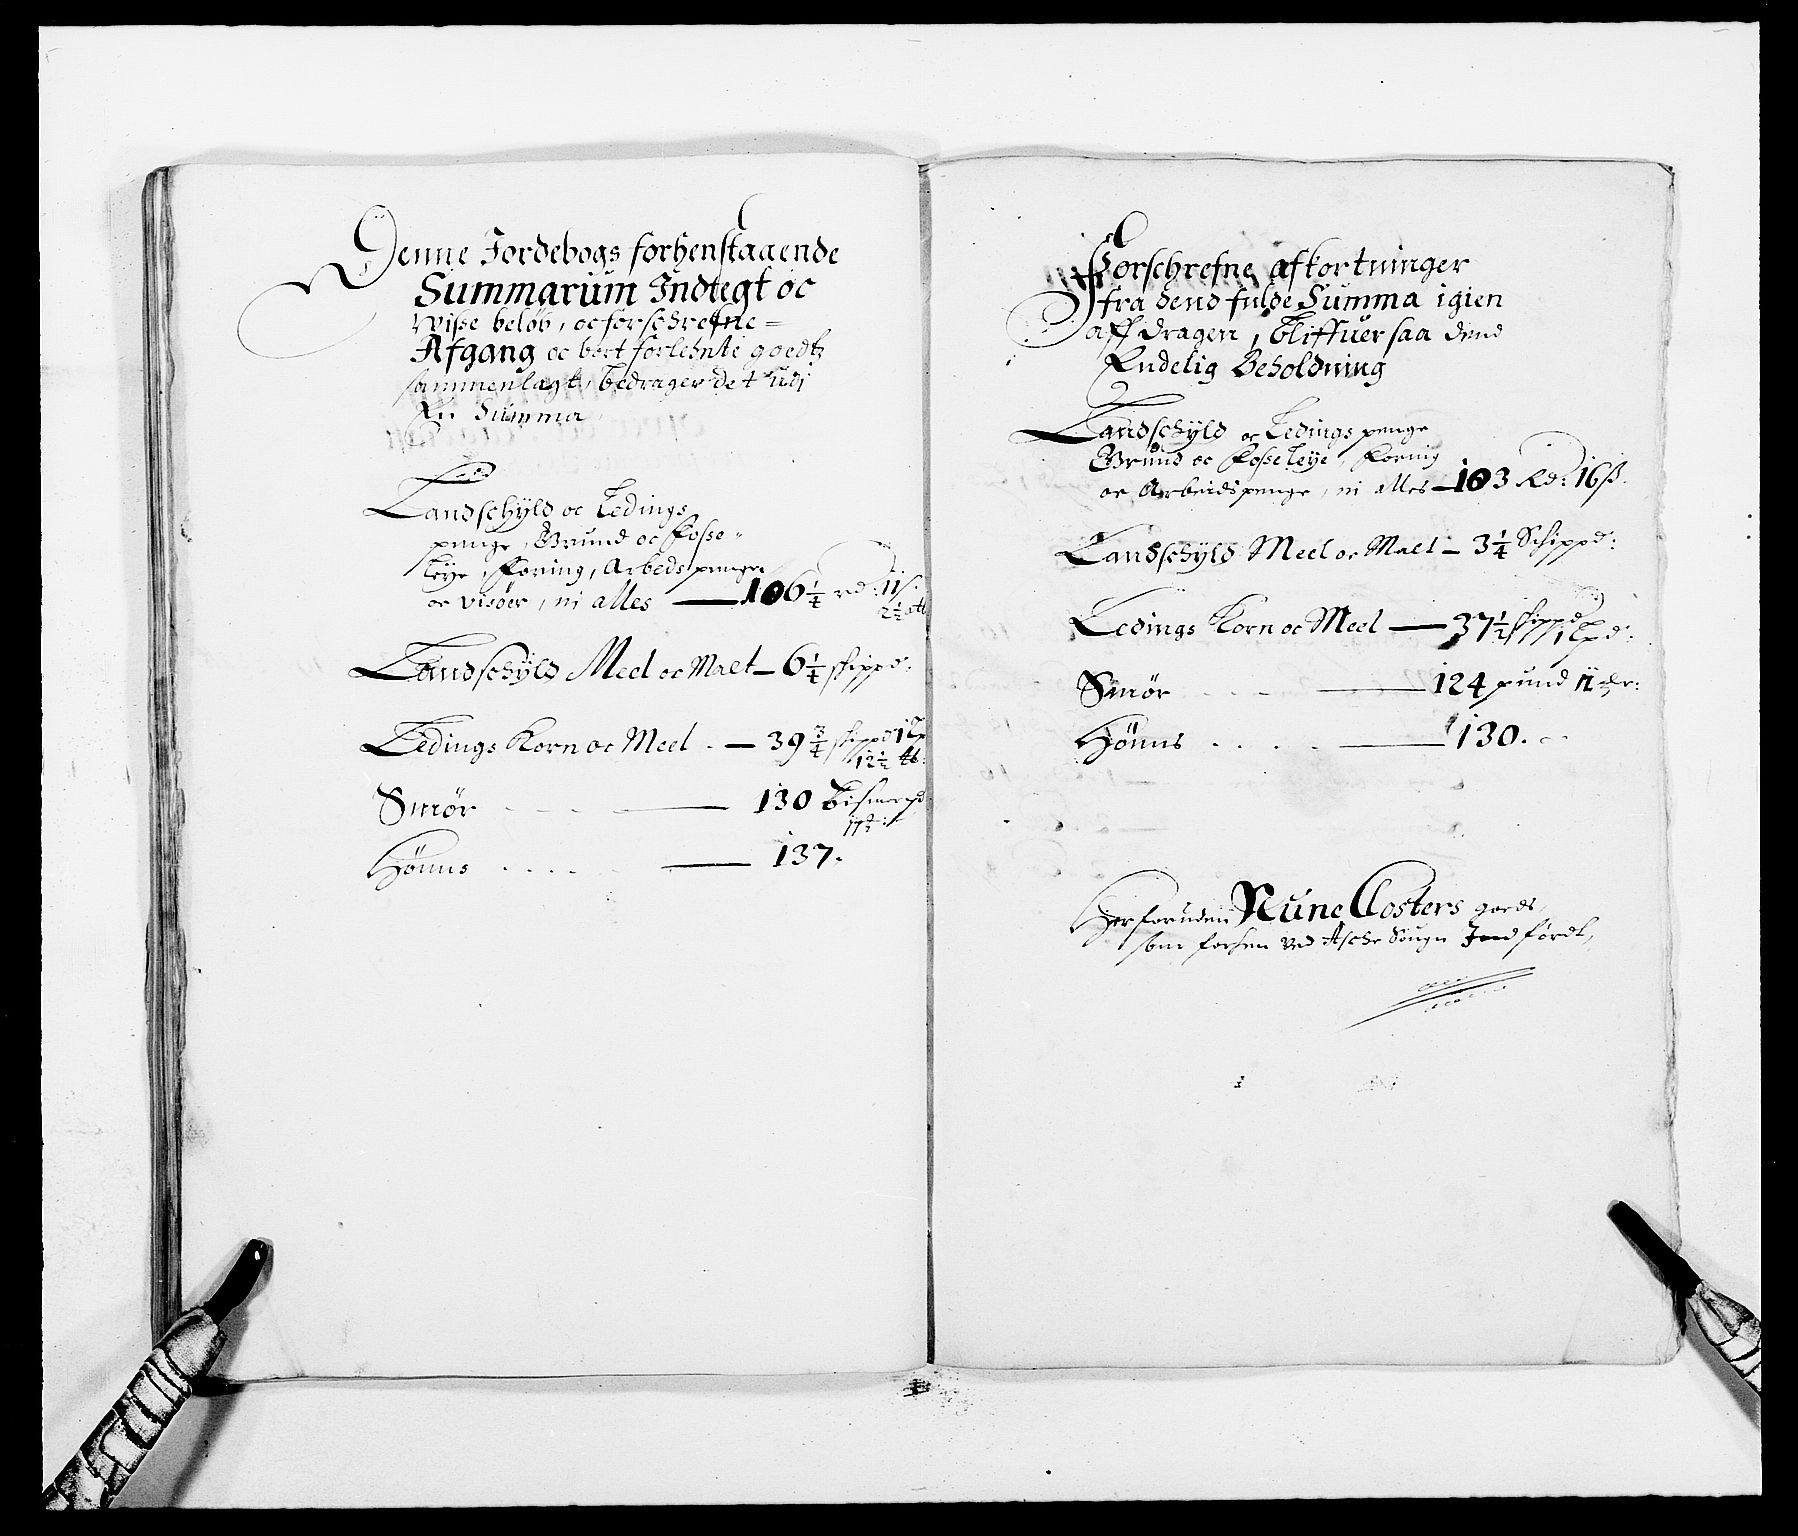 Denne Jordebogs forhenstaaende
Summarum Indtegt oc
wisse beløb, oc forschrefne
Afgang oc bort forlehnte goedtz
sammenlagt, bedrager det udj
En Summa
Landschyld oc Ledings
penge, Grund oc Fosse-
leye, Foring, Arbeds penge
oc visøer, ni alles — 106 1/4 rd: 11 s.
2 1/2 alb
Landschyld Meel oc Malt — 6 1/4 skippd:
Ledings Korn oc Meel — 39 3/4 skippd 1 Lp
12 1/2 lb:
Smør — 130 bismerpd
Hønns — 137.
Forschrefne afkortninger
fra dend fulde Summa igien
aff dragen, bliffuer saa dend
Endelig Beholdning
Landschyld oc Ledings penge
Grund oc Fosse leye, Foring
oc Arbeidspenge, ni alles — 103 Rd: 16 ß.
Landschyld Meel oc Malt — 3 1/4 Schippd:
Ledings Korn oc Meel — 37 1/2 skippd
1 Lpd:
Smør — 124 pund 11
Hønns — 130.
Herforuden Nune Closters goeds,
som forhen ved Asche Sougn Indførdt,